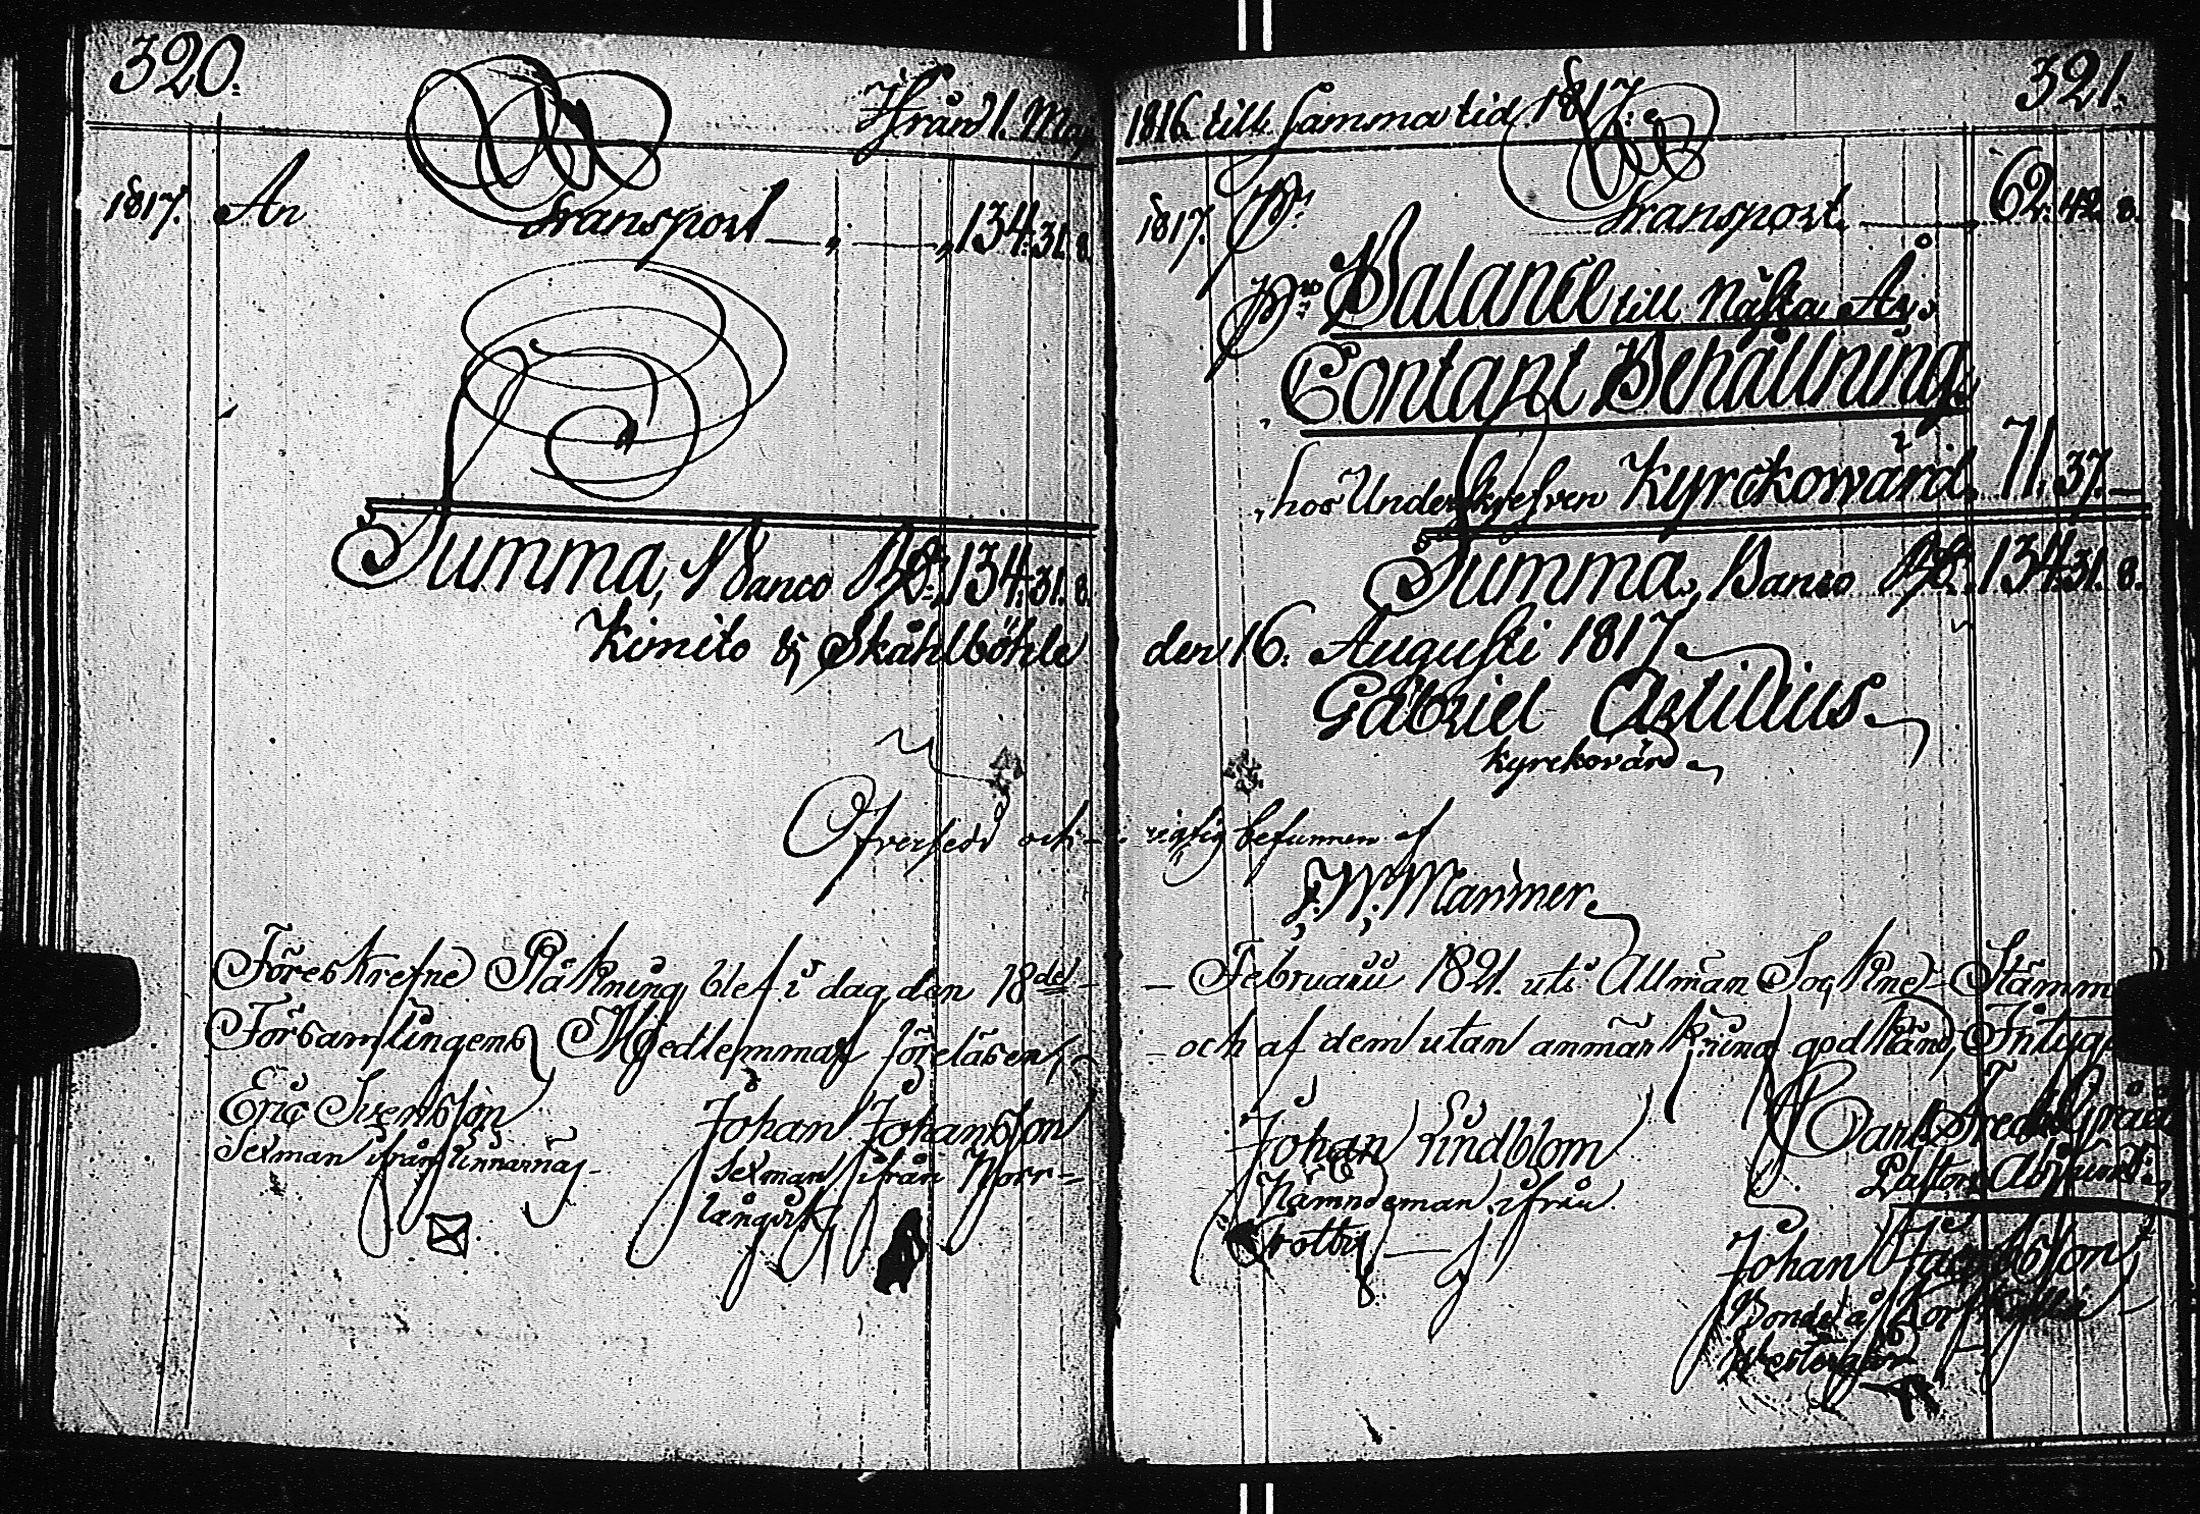 320.
Ifrån d 1. Maj
1817. An Transport " " 134. 31. 8.
Summa, Banco Rd. 134. 31. 8.
Kimito & Skåhlböhle
Öfversedd och
Föreskrefne Räkning blef i dag den 18de
Församlingens Medlemmar föreläsen,
Eric Svensson Johan Johansson
Sexman ifrån Linnarnäs. Sexman ifrån Norr-
långvik
321.
1816. till samma tid 1817.
1817. Pr Transport 62. 42. 8.
Pr Balance till Nästa År.
Contant Behållning
hos Underskrefven Kyrckowärd 71. 37. —
Summa, Banco Rd. 134. 31. 8.
den 16. Augusti 1817.
Gabriel Astilius.
Kyrckovärd
rigtig befunnen af
Manner.
Februarii 1821. uti Allmän Sockne Stämm
och af dem utan anmärkning godkänd, Intyga
Carl Fredr
Johan Lindblom Pastor
Nämndeman ifrån
Johan
Bonde å